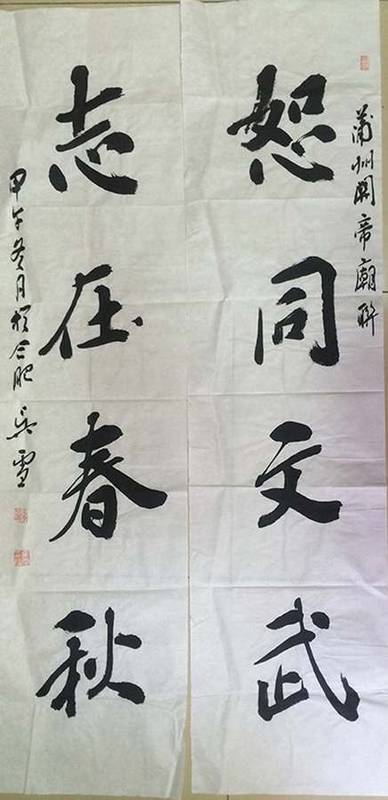 蒲州関帝廟聯
恕同文武
志在春秋
甲午冬月於合肥 吴雪